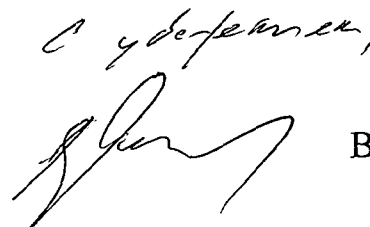 С уважением,
В